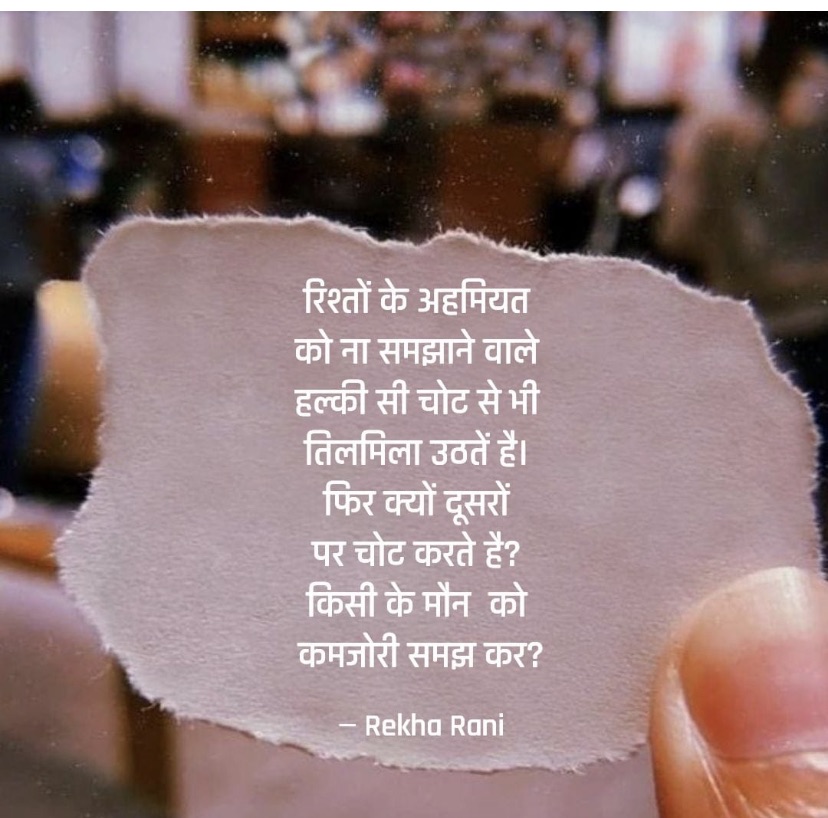 रिश्तों के अहमियत
को ना समझाने वाले
हल्की सी चोट से भी
तिलमिला उठतें है।
फिर क्यों दूसरों
पर चोट करते है?
किसी के मौन को
कमजोरी समझ कर?
— Rekha Rani